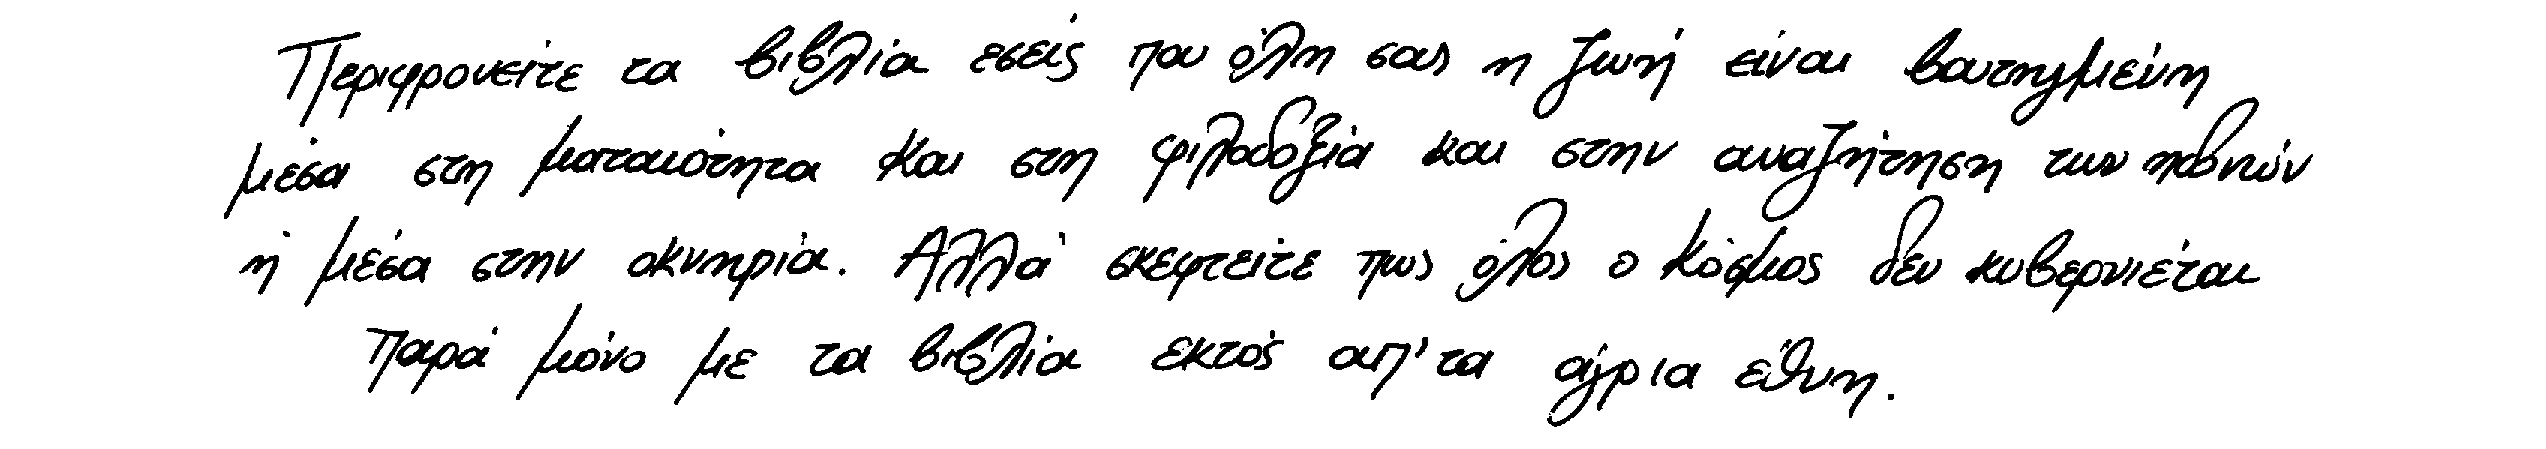 Περιφρονείτε τα βιβλία εσείς που όλη σας η ζωή είναι βουτηγμένη
μέσα στη ματαιότητα και στη φιλοδοξία και στην αναζήτηση των ηδονών
ή μέσα στην οκνηρία. Αλλά σκεφτείτε πως όλος ο κόσμος δεν κυβερνιέται
παρά μόνο με τα βιβλία εκτός απ' τα άγρια έθνη.